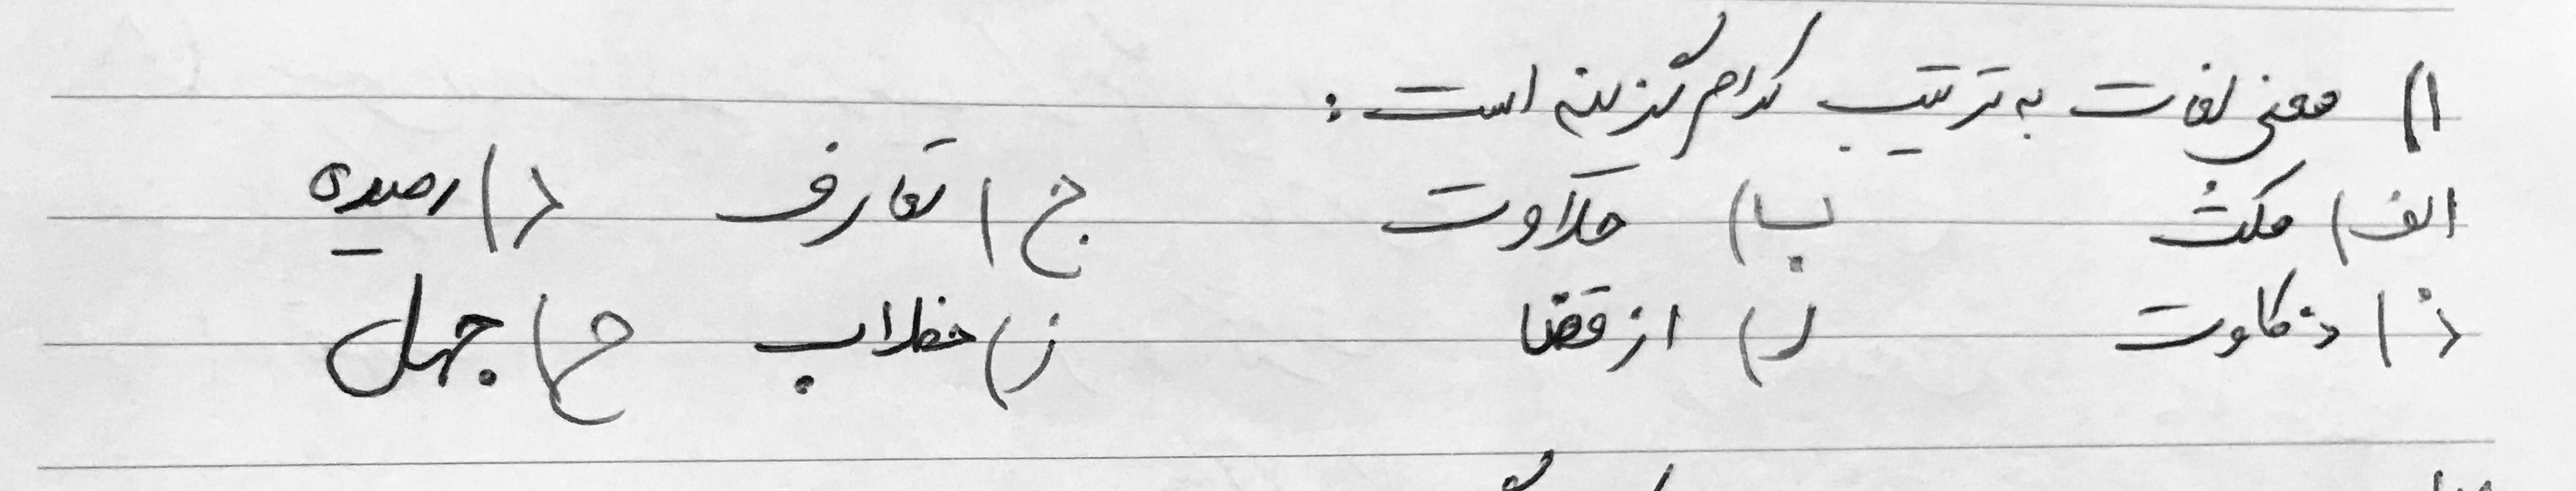 ۱) معنی لغات به ترتیب کدام گزینه است:
الف) مکث ب) حلاوت ج) تعارف د) رمیده
ذ) ذکاوت ر) از قضا ز) خطاب ح) جهل